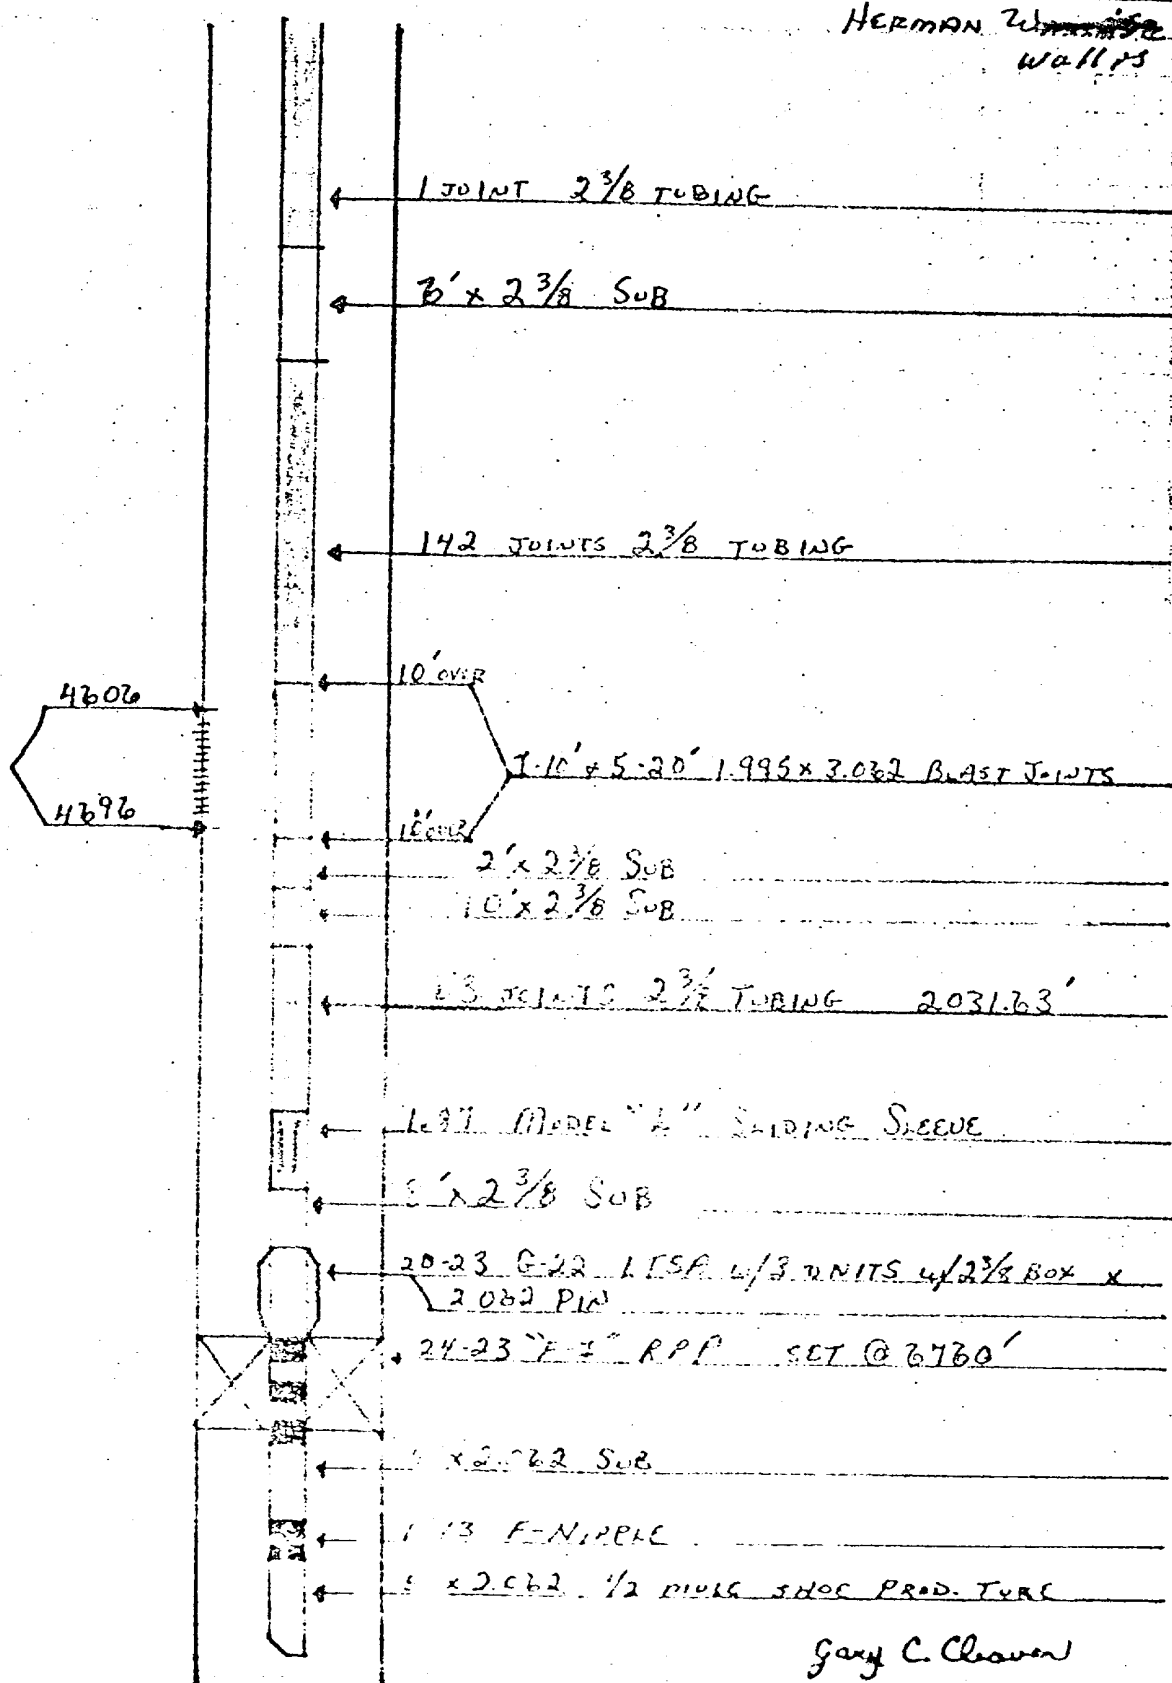 HERMAN
Wallis
1 JOINT 2 3/8 TUBING
6' x 2 3/8 SUB
142 JOINTS 2 3/8 TUBING
10' OVER
4606
1-10' & 5-20' 1.995 x 3.062 BLAST JOINTS
4696
10' OVER
2' x 2 3/8 SUB
10' x 2 3/8 SUB
63 JOINTS 2 3/8 TUBING 2031.63'
1.87 MODEL "L" SLIDING SLEEVE
8' x 2 3/8 SUB
20-23 G-22 LTSA w/3 UNITS w/2 3/8 BOX x
2.062 PIN
24-23 RPP SET @ 6760'
x 2.062 SUB
F-NIPPLE
x 2.062 1/2 MULE SHOE PROD. TUBE
Gary C.